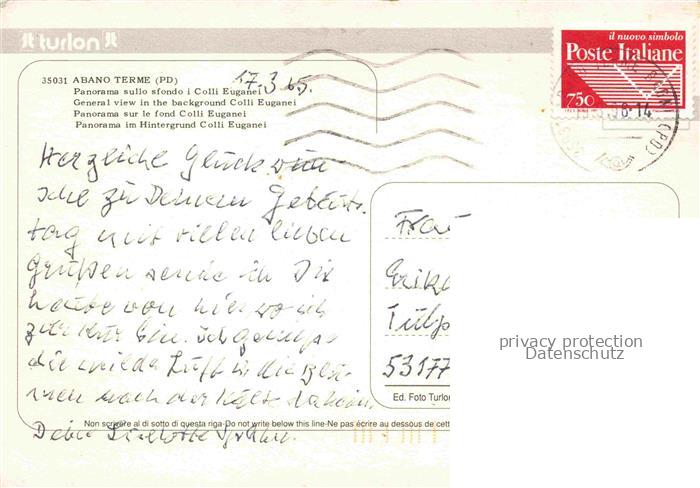 turlon
il nuovo simbolo
Poste Italiane
750
8-14
(PD)
35031 ABANO TERME (PD)
17.3.
Panorama sullo sfondo i Colli Euganei
General view in the background Colli Euganei
Panorama sur le fond Colli Euganei
Panorama im Hintergrund Colli Euganei
Herzliche Glückwün
sche zu Deinem Geburts.
tag mit vielen lieben
Grüßen sende ich Dir
heute von hier wo ich
zur Kur bin. Ich genieße
die milde Luft u. die
nach der Kälte daheim.
Deine
Frau
Erika
Tulp
53177
privacy protection
Datenschutz
Ed. Foto Turlon
Non scrivere al di sotto di questa riga-Do not write below this line-Ne pas écrire au dessous de cett